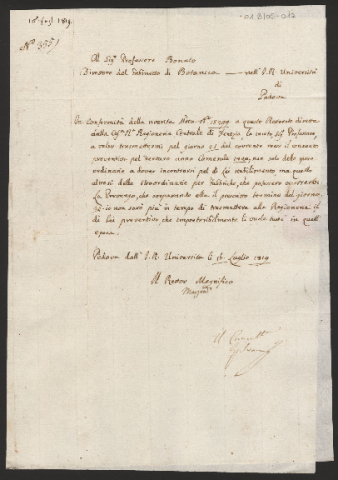 N° 3551
Al Sig.r Professore Bonato
Direttore del Gabinetto di Botanica — nell'I. R. Università
di
Padova
In conformità della riverita Nota N° a questo Rettorato diretta
dalla Ces.a R.a Ragioneria Centrale di Venezia, la invito Sig.r Professore,
a voler trasmettermi pel giorno 21 del corrente mese il consueto
preventivo pel venturo anno Camerale 1820, non solo delle spese
ordinarie a dover incontrarsi pel di Lei stabilimento ma quello
altresì delle straordinarie per fabbriche, che potessero occorrere.
La Prevengo, che oltre il prescritto termine del giorno
21 io non sarò più in tempo di trasmettere alla Ragioneria il
di Lei preventivo che impreteribilmente li vuole tutti in quell'
epoca.
Padova dall'I. R. Università li 16 Luglio 1819
Il Rettor Magnifico
Il